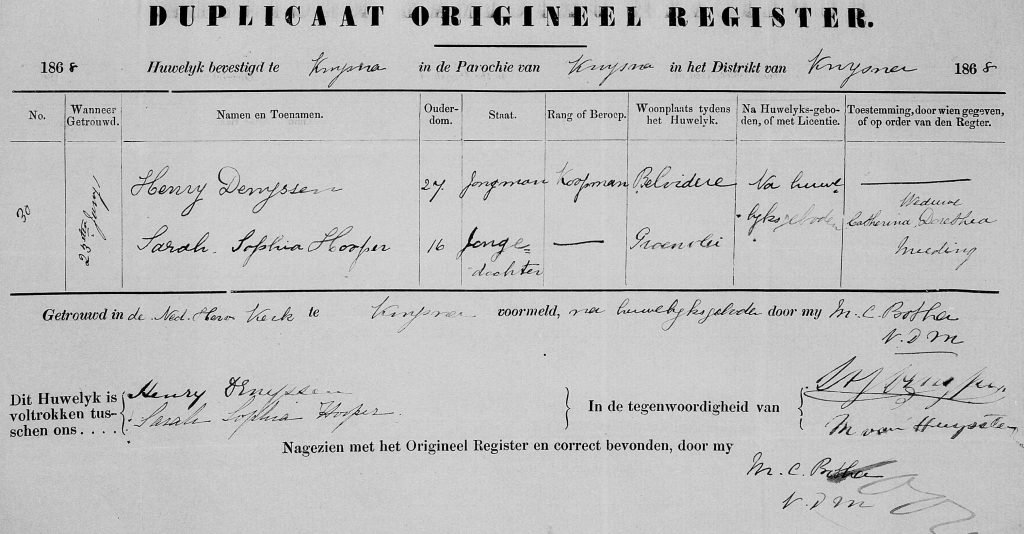 DUPLICAAT ORIGINEEL REGISTER.
1868 Huwelyk bevestigd te Knysna in de Parochie van Knysna in het Distrikt van Knysna 1868
No. Wanneer Getrouwd. Namen en Toenamen. Ouder-dom. Staat. Rang of Beroep. Woonplaats tydens het Huwelyk. Na Huwelyks-gebo-den, of met Licentie. Toestemming, door wien gegeven, of op order van den Regter.
30 23ste Juny
Henry Denyssen 27 Jongman Koopman Belvidere Na huwe
lyksgeboden
Sarah Sophia Hooper 16 Jonge= — Groenvlei
dochter
Weduwe
Catherina Dorothea
Meeding
Getrouwd in de Ned. Herv Kerk te Knysna voormeld, na huwelyksgeboden door my M. C. Botha
V. D M
Dit Huwelyk is voltrokken tus-schen ons . . . .
Henry Denyssen
Sarah Sophia Hooper.
In de tegenwoordigheid van
M van Huyssteen
Nagezien met het Origineel Register en correct bevonden, door my
M. C. Botha
V. D M